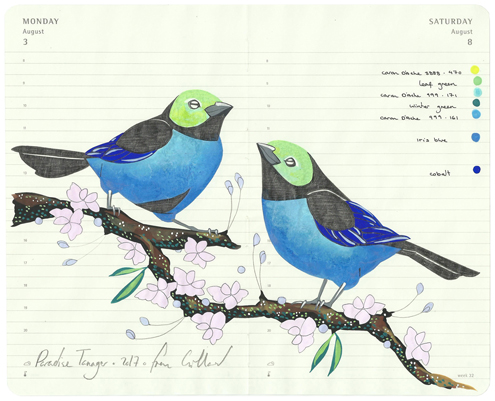 MONDAY
August
3
SATURDAY
August
8
caran D'Ache 8888 - 470
leaf green
caran D'Ache 999 - 171
winter green
caran D'Ache 999 - 161
iris blue
cobalt
Paradise Tanager - 2017 - from